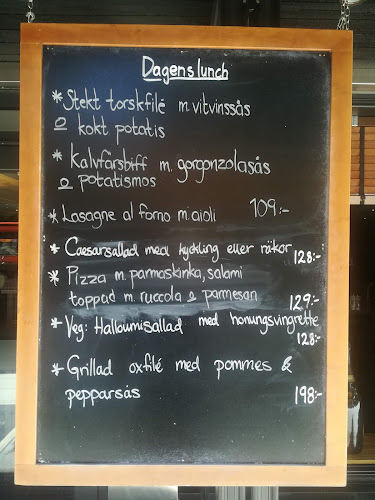 Dagenslunch
* Stekt torskfilé m. vitvinssås
o kokt potatis
* Kalvfärsbiff m. gorgonzolasås
o potatismos
* Lasagne al forno m. aioli 109:-
* Caesarsallad med kyckling eller räkor 128:-
* Pizza m. parmaskinka, salami
toppad m. ruccola & parmesan 129:-
* Veg: Halloumisallad med honungsvingrette
128:-
* Grillad oxfilé med pommes &
pepparsås 198:-